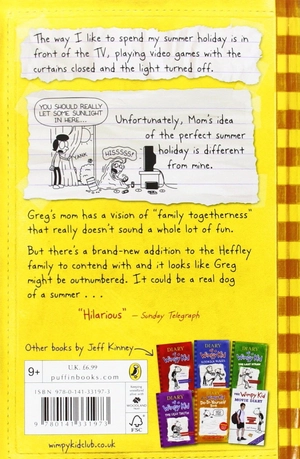 The way I like to spend my summer holiday is in
front of the TV, playing video games with the
curtains closed and the light turned off.
YOU SHOULD REALLY
LET SOME SUNLIGHT
IN HERE...
YANK
HISSSSS!
Unfortunately, Mom's idea
of the perfect summer
holiday is different
from mine.
Greg's mom has a vision of "family togetherness"
that really doesn't sound a whole lot of fun.
But there's a brand-new addition to the Heffley
family to contend with and it looks like Greg
might be outnumbered. It could be a real dog
of a summer . . .
"Hilarious" – Sunday Telegraph
Other books by Jeff Kinney
9+
U.K. £6.99
puffinbooks.com
ISBN 978-0-141-33197-3
9 780141 331973
FSC
wimpykidclub.co.uk
DIARY
of a
Wimpy Kid
DIARY
of a
Wimpy Kid
RODRICK RULES
DIARY
of a
Wimpy Kid
THE LAST STRAW
DIARY
of a
Wimpy Kid
THE UGLY TRUTH
DIARY
of a
Wimpy Kid
Do-It-Yourself
Book
THE
Wimpy Kid
MOVIE DIARY